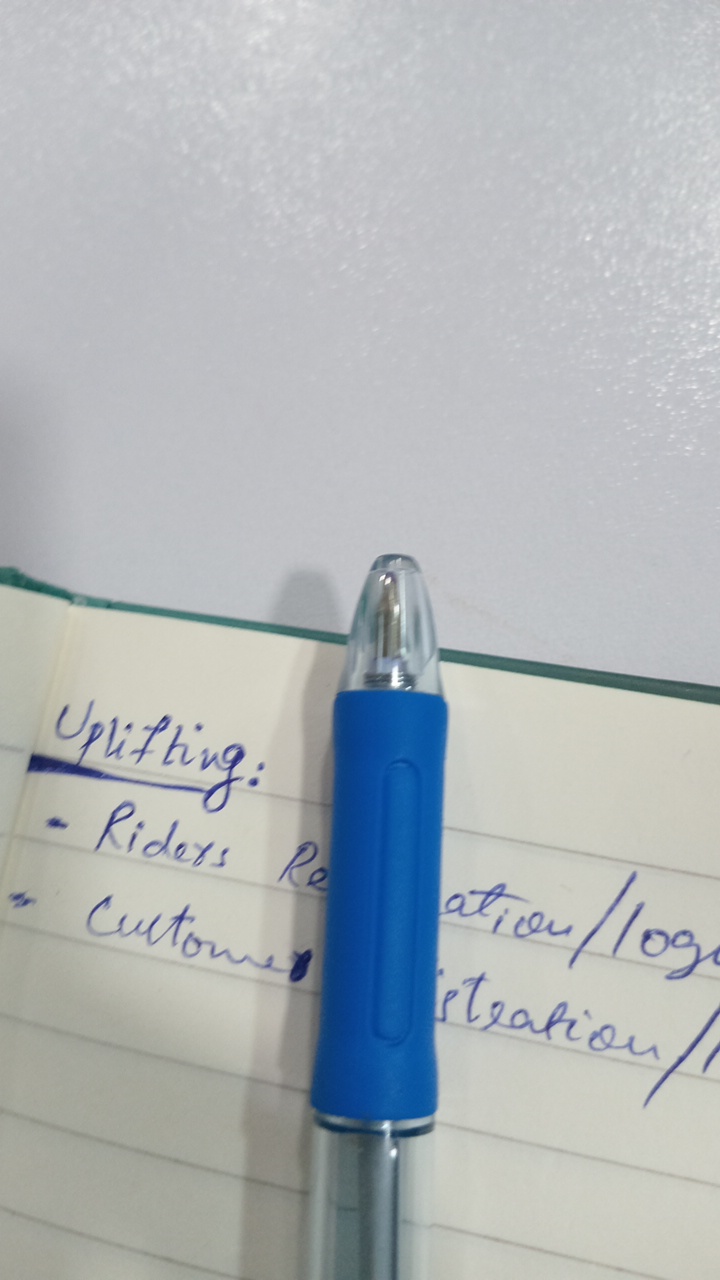 Uplifting:
- Riders Re ation/logi
- Customer istration/l